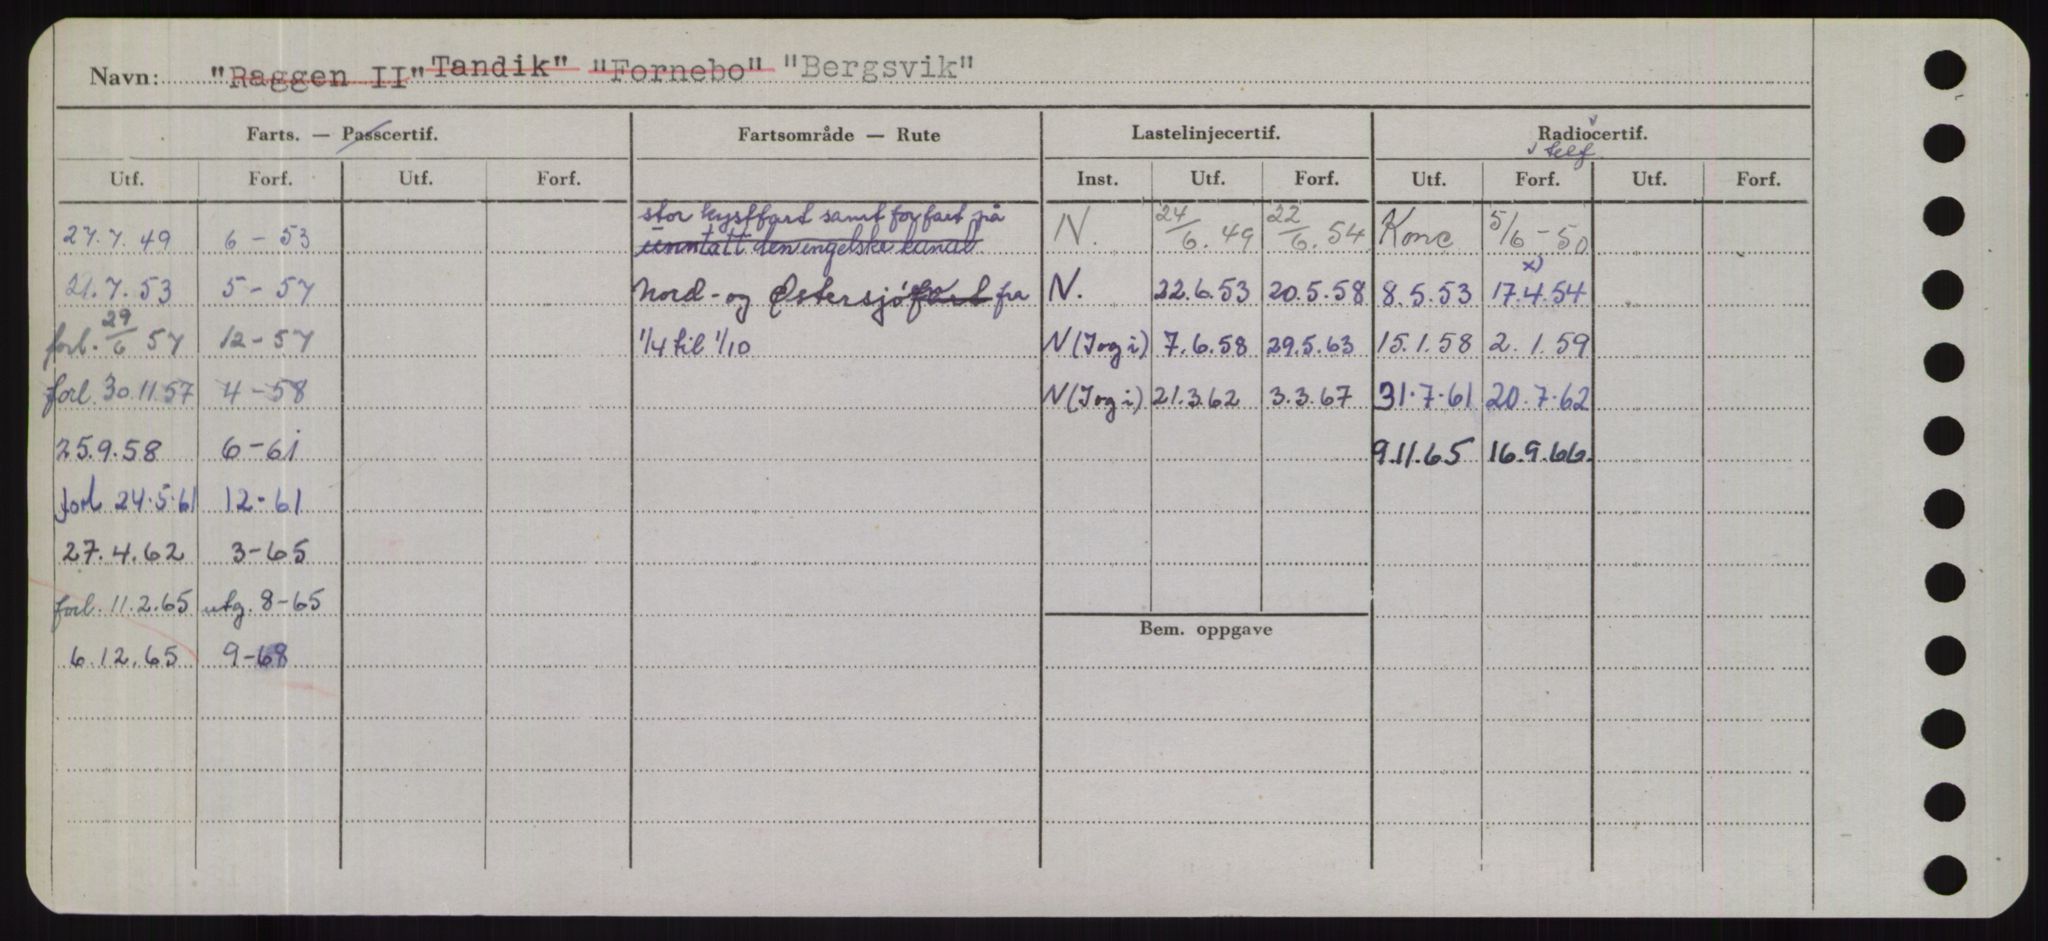 Navn: "Raggen II" Tandik" "Fornebo" "Bergsvik"
Farts. — Passcertif. Fartsområde — Rute Lastelinjecertif. Radiocertif.
telf.
Utf. Forf. Utf. Forf. Inst. Utf. Forf. Utf. Forf. Utf. Forf.
stor kystfart samt for fart på
27.7.49 6-53 unntatt den engelske kanal N. 24/6.49 22/6.54 Konc 5/6-50
21.7.53 5-57 Nord- og Østersjøfart fra N. 22.6.53 20.5.58 8.5.53 17.4.54 x)
forl. 29/6 57 12-57 1/4 til 1/10 N (I og i) 7.6.58 29.5.63 15.1.58 2.1.59
forl. 30.11.57 4-58 N (I og i) 21.3.62 3.3.67 31.7.61 20.7.62
25.9.58 6-61 9.11.65 16.9.66.
forl 24.5.61 12-61
27.4.62 3-65
forl. 11.2.65 utg. 8-65
Bem. oppgave
6.12.65 9-68